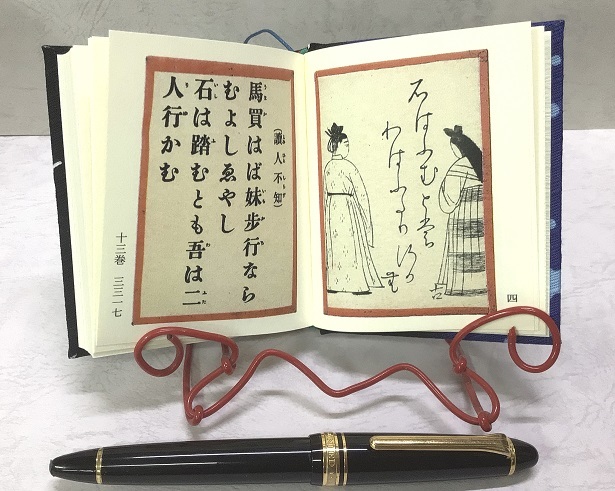 石はふむとも
わはふたり
四
（讀人不知）
馬買はば妹歩行なら
むよしゑやし
石は踏むとも吾は二
人行かむ
十三巻 三三一七